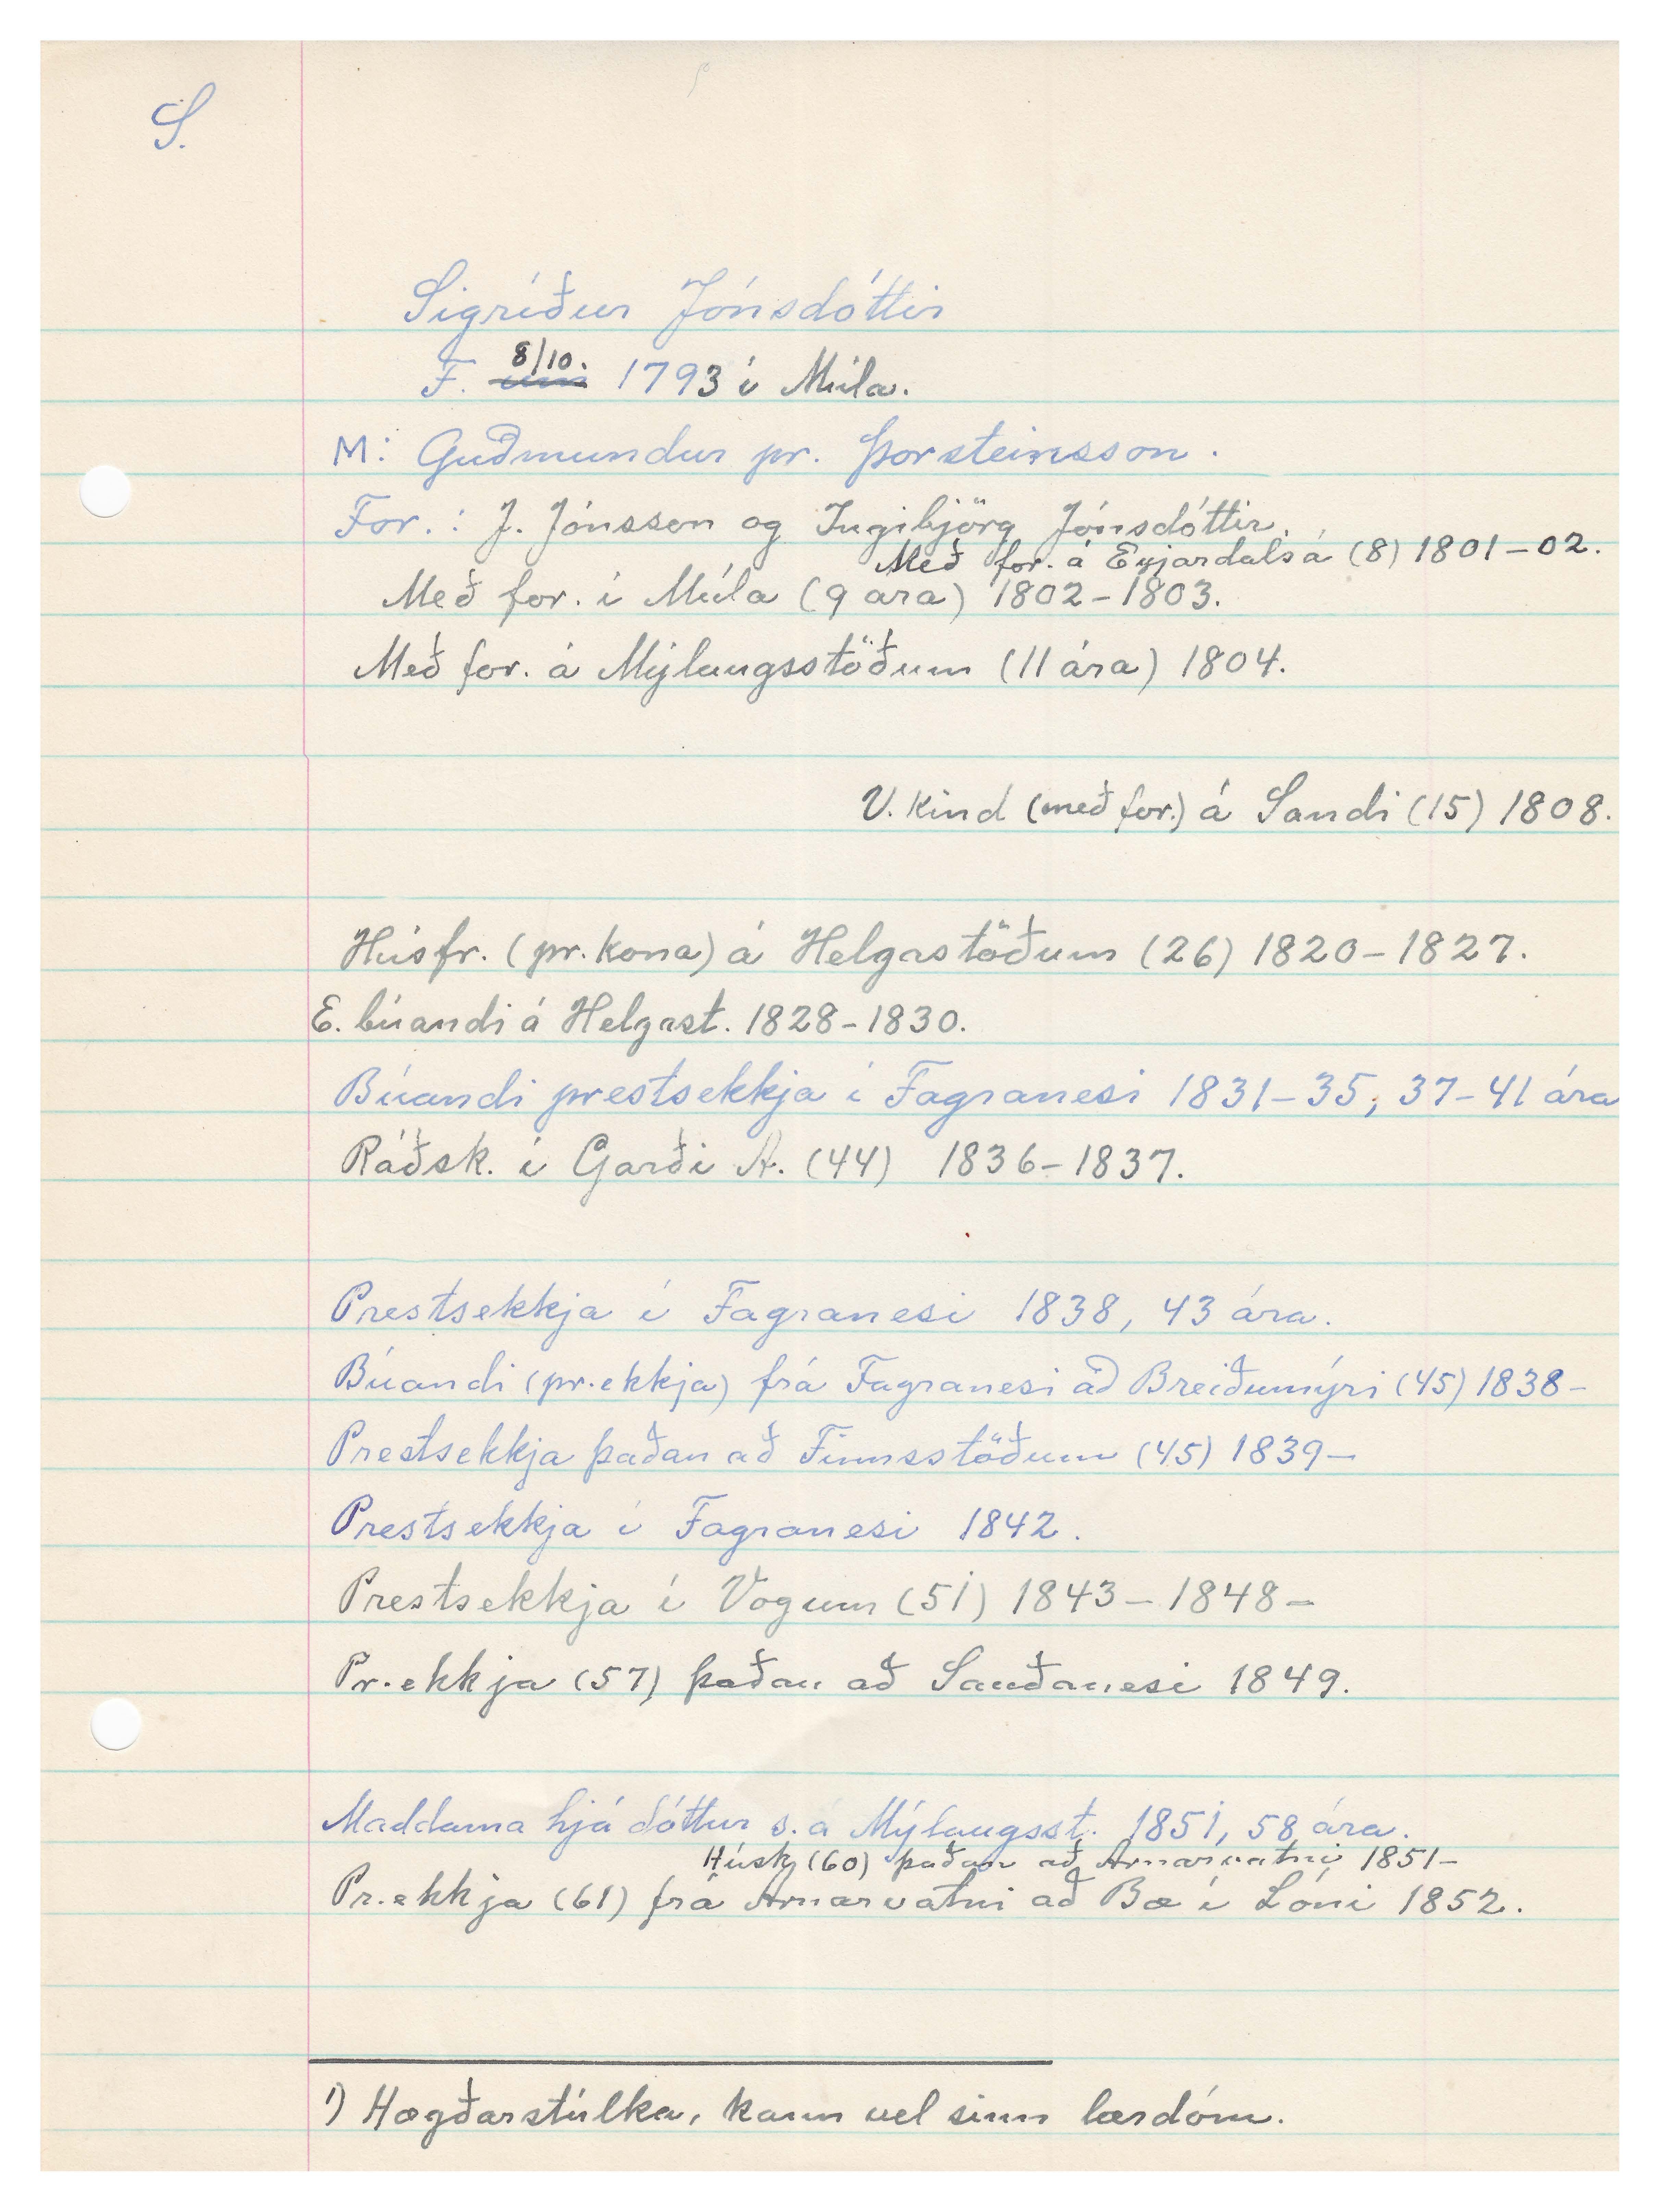 S.
Sigríður Jónsdóttir
F. 8/10. 1793 í Múla.
M: Guðmundur pr. Þorsteinsson.
For.: J. Jónsson og Ingibjörg Jónsdóttir.
Með for. á Eyjardalsá (8) 1801-02.
Með for. í Múla (9 ara) 1802-1803.
Með for. á Mýlaugsstöðum (11 ára) 1804.
V. kind (með for.) á Sandi (15) 1808.
Húsfr. (pr. kona) á Helgastöðum (26) 1820-1827.
E. búandi á Helgast. 1828-1830.
Búandi prestsekkja í Fagranesi 1831-35, 37-41 ára
Ráðsk. í Garði A. (44) 1836-1837.
Prestsekkja í Fagranesi 1838, 43 ára.
Búandi (pr.ekkja) frá Fagranesi að Breiðumýri (45) 1838-
Prestsekkja þaðan að Finnsstöðum (45) 1839-
Prestsekkja í Fagranesi 1842.
Prestsekkja í Vogum (51) 1843-1848-
Pr.ekkja (57) þaðan að Sauðanesi 1849.
Maddama hjá dóttur s. á Mýlaugsst. 1851, 58 ára.
Húsk. (60) þaðan að Arnarvatni 1851-
Pr.ekkja (61) frá Arnarvatni að Bæ í Lóni 1852.
1) Hægðarstúlka, kann vel sinn lærdóm.